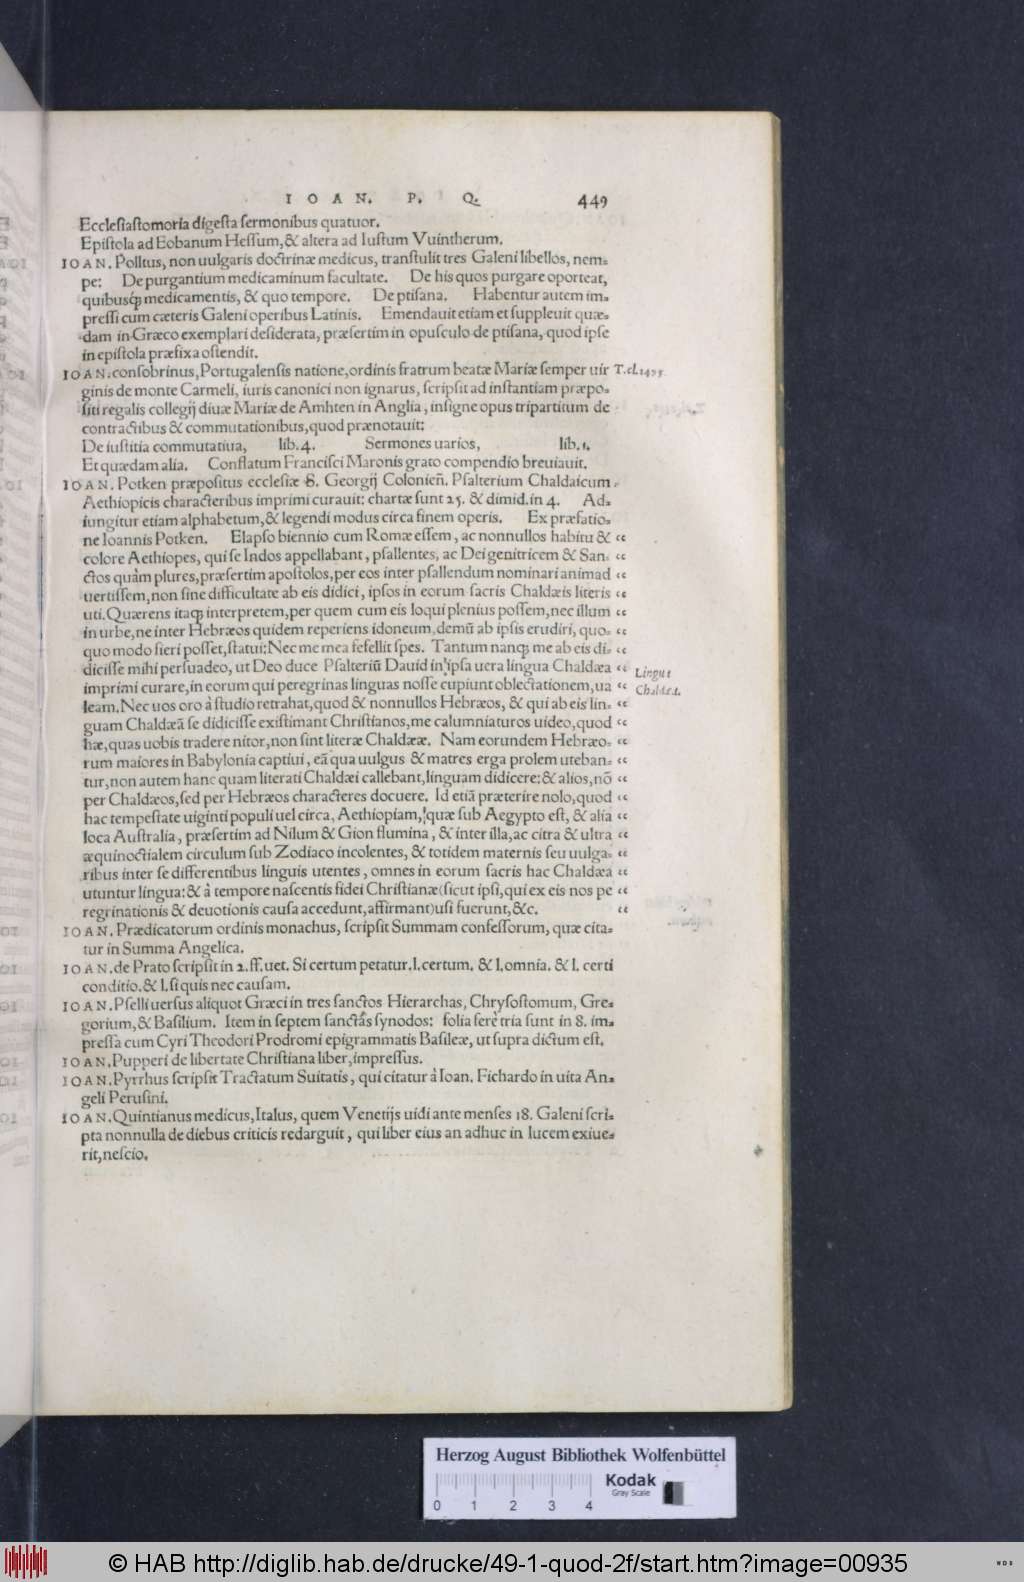 IOAN. P. Q. 449
Eccleſiaſtomoria digeſta ſermonibus quatuor.
Epiſtola ad Eobanum Heſſum, & altera ad Iuſtum Vuintherum.
IOAN. Pollius, non uulgaris doctrinæ medicus, tranſtulit tres Galeni libellos, nem=
pe: De purgantium medicaminum facultate. De his quos purgare oporteat,
quibusq́ medicamentis, & quo tempore. De ptiſana. Habentur autem im=
preſſi cum cæteris Galeni operibus Latinis. Emendauit etiam et ſuppleuit quæ=
dam in Græco exemplari deſiderata, præſertim in opuſculo de ptiſana, quod ipſe
in epiſtola præfixa oſtendit.
IOAN. conſobrinus, Portugalenſis natione, ordinis fratrum beatæ Mariæ ſemper uir T.cl.1475.
ginis de monte Carmeli, iuris canonici non ignarus, ſcripſit ad inſtantiam præpo=
ſiti regalis collegij diuæ Mariæ de Amhten in Anglia, inſigne opus tripartitum de
contractibus & commutationibus, quod prænotauit:
De iuſtitia commutatiua, lib. 4. Sermones uarios, lib. 1.
Et quædam alia. Conflatum Franciſci Maronis grato compendio breuiauit.
IOAN. Potken præpoſitus eccleſiæ S. Georgij Colonieñ. Pſalterium Chaldaicum
Aethiopicis characteribus imprimi curauit: chartæ ſunt 25. & dimid. in 4. Ad=
iungitur etiam alphabetum, & legendi modus circa finem operis. Ex præfatio=
ne Ioannis Potken. Elapſo biennio cum Romæ eſſem, ac nonnullos habitu & “
colore Aethiopes, qui ſe Indos appellabant, pſallentes, ac Dei genitricem & San= “
ctos quàm plures, præſertim apoſtolos, per eos inter pſallendum nominari animad “
uertiſſem, non ſine difficultate ab eis didici, ipſos in eorum ſacris Chaldæis literis “
uti. Quærens itaq́ interpretem, per quem cum eis loqui plenius poſſem, nec illum “
in urbe, ne inter Hebræos quidem reperiens idoneum, demũ ab ipſis erudiri, quo= “
quo modo fieri poſſet, ſtatui: Nec me mea fefellit ſpes. Tantum nanq́ me ab eis di= “
diciſſe mihi perſuadeo, ut Deo duce Pſalteriũ Dauid in ipſa uera lingua Chaldæa “ Lingua
imprimi curare, in eorum qui peregrinas linguas noſſe cupiunt oblectationem, ua “ Chaldæa.
leam. Nec uos oro à ſtudio retrahat, quod & nonnullos Hebræos, & qui ab eis lin= “
guam Chaldæã ſe didiciſſe exiſtimant Chriſtianos, me calumniaturos uideo, quod “
hæ, quas uobis tradere nitor, non ſint literæ Chaldææ. Nam eorundem Hebræo= “
rum maiores in Babylonia captiui, eã qua uulgus & matres erga prolem uteban= “
tur, non autem hanc quam literati Chaldæi callebant, linguam didicere: & alios, nõ “
per Chaldæos, ſed per Hebræos characteres docuere. Id etiã præterire nolo, quod “
hac tempeſtate uiginti populi uel circa, Aethiopiam, quæ ſub Aegypto eſt, & alia “
loca Auſtralia, præſertim ad Nilum & Gion flumina, & inter illa, ac citra & ultra “
æquinoctialem circulum ſub Zodiaco incolentes, & totidem maternis ſeu uulga= “
ribus inter ſe differentibus linguis utentes, omnes in eorum ſacris hac Chaldæa “
utuntur lingua: & à tempore naſcentis fidei Chriſtianæ (ſicut ipſi, qui ex eis nos pe “
regrinationis & deuotionis cauſa accedunt, affirmant) uſi fuerunt, &c. “
IOAN. Prædicatorum ordinis monachus, ſcripſit Summam confeſſorum, quæ cita=
tur in Summa Angelica.
IOAN. de Prato ſcripſit in 2. ff. uet. Si certum petatur. l. certum. & l. omnia. & l. certi
conditio. & l. ſi quis nec cauſam.
IOAN. Pſelli uerſus aliquot Græci in tres ſanctos Hierarchas, Chryſoſtomum, Gre=
gorium, & Baſilium. Item in ſeptem ſanctas ſynodos: folia ferè tria ſunt in 8. im=
preſſa cum Cyri Theodori Prodromi epigrammatis Baſileæ, ut ſupra dictum eſt.
IOAN. Pupperi de libertate Chriſtiana liber, impreſſus.
IOAN. Pyrrhus ſcripſit Tractatum Suitatis, qui citatur à Ioan. Fichardo in uita An=
geli Peruſini.
IOAN. Quintianus medicus, Italus, quem Venetijs uidi ante menſes 18. Galeni ſcri=
pta nonnulla de diebus criticis redarguit, qui liber eius an adhuc in lucem exiue=
rit, neſcio.
Herzog August Bibliothek Wolfenbüttel
Kodak
Gray Scale
0 1 2 3 4
© HAB http://diglib.hab.de/drucke/49-1-quod-2f/start.htm?image=00935